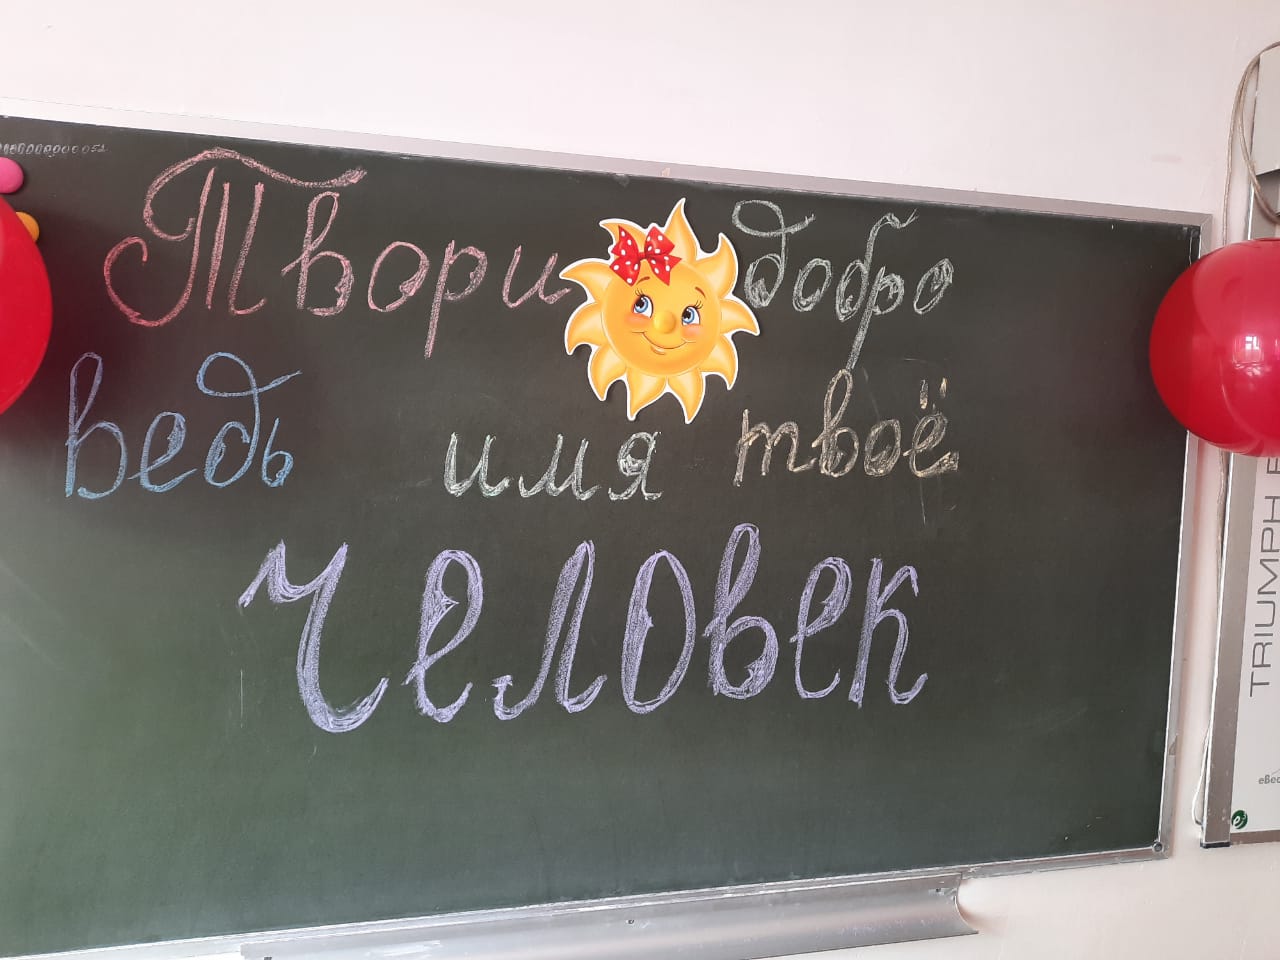 Твори добро
ведь имя твоё
Человек
TRIUMPH